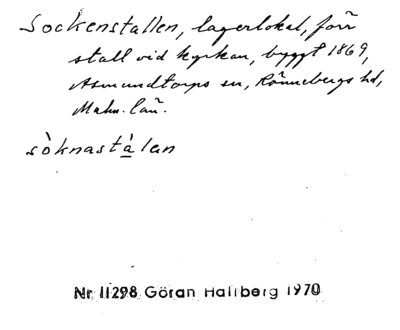 Sockenstallen, lagerlokal, förr
stall vid kyrkan, byggt 1869,
Asmundtorps sn, Rönnebergs hd,
Malm. län.
sòknastàlan
Nr 11298 Göran Hallberg 1970